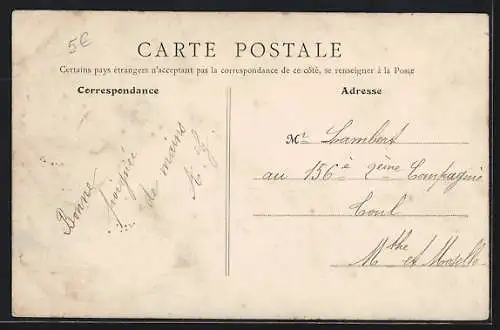 5€
CARTE POSTALE
Certains pays étrangers n'acceptant pas la correspondance de ce côté, se renseigner à la Poste
Correspondance
Adresse
Bonne
de mains
Mr Lambert
au 156è 2ème Compagnie
Toul
Mthe et Moselle